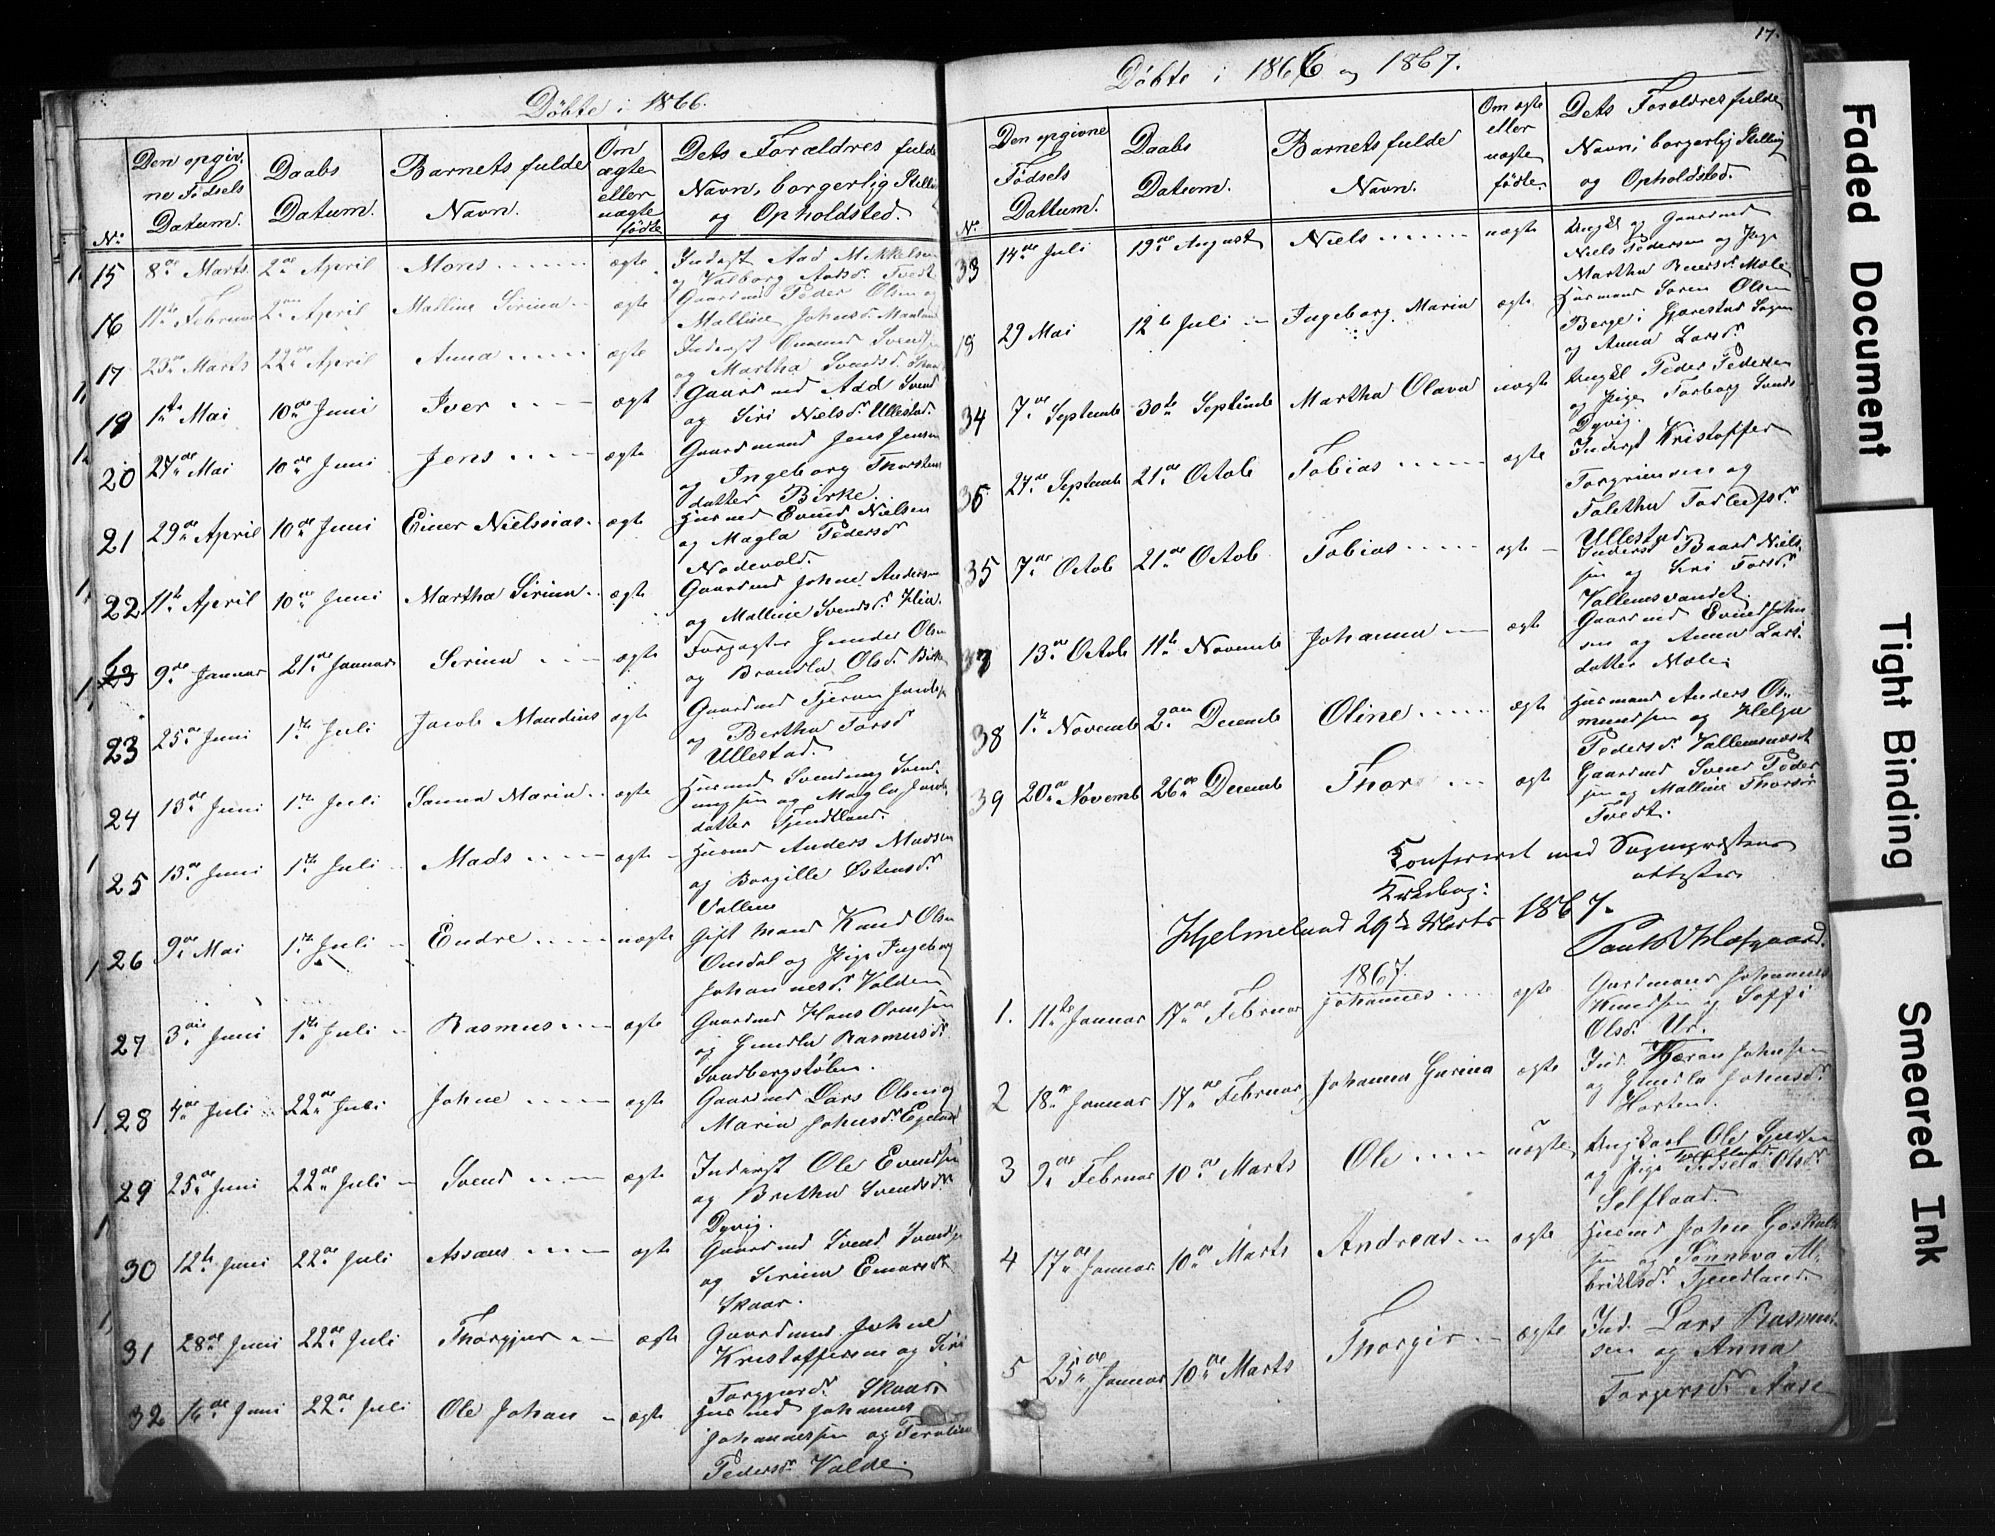 Döbte i 1866.
No.
Den opgiv-
ne Födsels
Datum.
Daabs
Datum.
Barnets fulde
Navn.
Om
ægte
eller
uægte
födte
Dets Forældres fulde
Navn, borgerlig Stilling
og Opholdsted.
15 8de Marts 2den April Mons ægte Inderst Aad Mikkelsen
og Valborg Aadsdr Tvedt
16 11te Februar 2den April Malline Serina ægte Gaardmd Peder Olsen og
Malline Johnsd.
17 23de Marts 22de April Anna ægte Inderst Svends
og Martha Svendsd.
19 1te Mai 10de Juni Iver ægt Gaardmd Aad Svend
og Siri Nielsdr Ullestad.
20 27de Mai 10de Juni Jens ægte Gaardmand Jens Jensen
og Ingeborg Thorstens
datter Birke.
21 29de April 10de Juni Einer Nielssias ægte Husmd Evind Nielsen
og Magla Pedersd
Nodevold.
22 11te April 10de Juni Martha Serina ægte Gaardmd Johne Anders
og Malline Svendsdr
23 9de Januar 21de Januar Serina ægte Forpagter Gunder Olsen
og Brandla Olsdr Birke
23 25de Juni 1te Juli Jacob Mandius ægte Gaardmd Tjeran Jacobs
og Bertha Torsd
Ullestad.
24 13de Juni 1te Juli Sanna Maria ægte Husmd Svenung Svend-
ungsen og Magla Jacobs
datter Tjendtland.
25 13de Juni 1te Juli Mads ægte Husmd Anders Madsen
og Borgille Østensdr
Vallene
26 9de Mai 1te Juli Endre uægte Gift Mand Knud Olsen
Omdal og Pige Ingeborg
Johannesdr Valden
27 3die Juni 1te Juli Rasmus ægte Gaardmd Hans Ormsen
og Gundla Rasmusdr
Sandbergstölen.
28 4de Juli 22de Juli Johne ægte Gaardmd Lars Olsen og
Maria Johnsdr Egeland
29 25de Juni 22de Juli Svend ægte Inderst Ole Evendsen
og Britha Svendsdr
Dyvig.
30 12te Juni 22de Juli Assaus ægte Gaardmd Svend Svends
og Serina Emarsdr
Skaar.
31 28de Juni 22de Juli Thorgjer ægte Gaardmd Johne
Kristoffersen og Siri
Torgjersdr Skaar
32 16de Juni 22de Juli Ole Johan ægte Husmd Johannes
Johannessen og Teroline
Pedersdr Valde.
17.
Döbte i 1866 og 1867.
No.
Den opgivne
Födsels
Dattum.
Daabs
Datum.
Barnets fulde
Navn.
Om ægte
eller
uægte
födte
Dets Foroldres fulde
Navn, borgerlig Stilling
og Opholdsted.
33 14de Juli 19de August Niels uægte Ungkl og Gaardmd
Niels Pedersen og Pige
Martha Mæle
18 29 Mai 12te Juli Ingeborg Maria ægte Husmand Sören Olsen
Berge i Fjorestad Sogn
og Anna Larsdr
34 7de Septemb 30te Septemb Martha Olava uægte Ungkl Peder Pedersen
og Pige Torborg Svends
Dyvig.
36 27de Septemb 21de Octob Tobias ægte Inderst Kristoffer
Torgrimsen og
Toletha Tollefsdr
Ullestad
35 7de Octob 21de Octob Tobias ægte Inderst Baard Niel-
sen og Siri Torsdr
Vallemsvandet.
37 13de Octob 11te Novemb Johanna ægte Gaardmd Evind John
sen og Anna Lars-
datter Mæle.
38 1te Novemb 2den Decemb Oline ægte Husmand Anders Os-
mundsen og Helga
Pedersdr Vallemsnæset
39 20de Novemb 26de Decemb Thor ægte Gaardmd Svend Peder
sen og Malline Thorsdr
Tvedt.
Konfereret med Sognepræstens
Kirkebog: attesteres
Hjelmeland 29de Marts 1867.
1867.
1. 11te Januar 17de Februar Johannes ægte Gardmand Johannes
Knudsen og Soffi
Olsdr Ur.
2 18de Januar 17de Februar Johanna Gurina ægte Ind. Tjeran Johnsen
og Gundla Johnsdr
Horten.
3 2den Februar 10de Marts Ole uægte Ungkarl Ole
og Pige Olsdr
Selfland.
4 17de Januar 10de Marts Andreas ægte Husmd John Goskals
sen og Sönneva Al-
briktsdr Tjendtland
5 25de Januar 10de Marts Thorgir ægte Ind. Lars Rasmus-
sen og Anna
Torgersdr Aase
Faded Document
Tight Binding
Smeared Ink